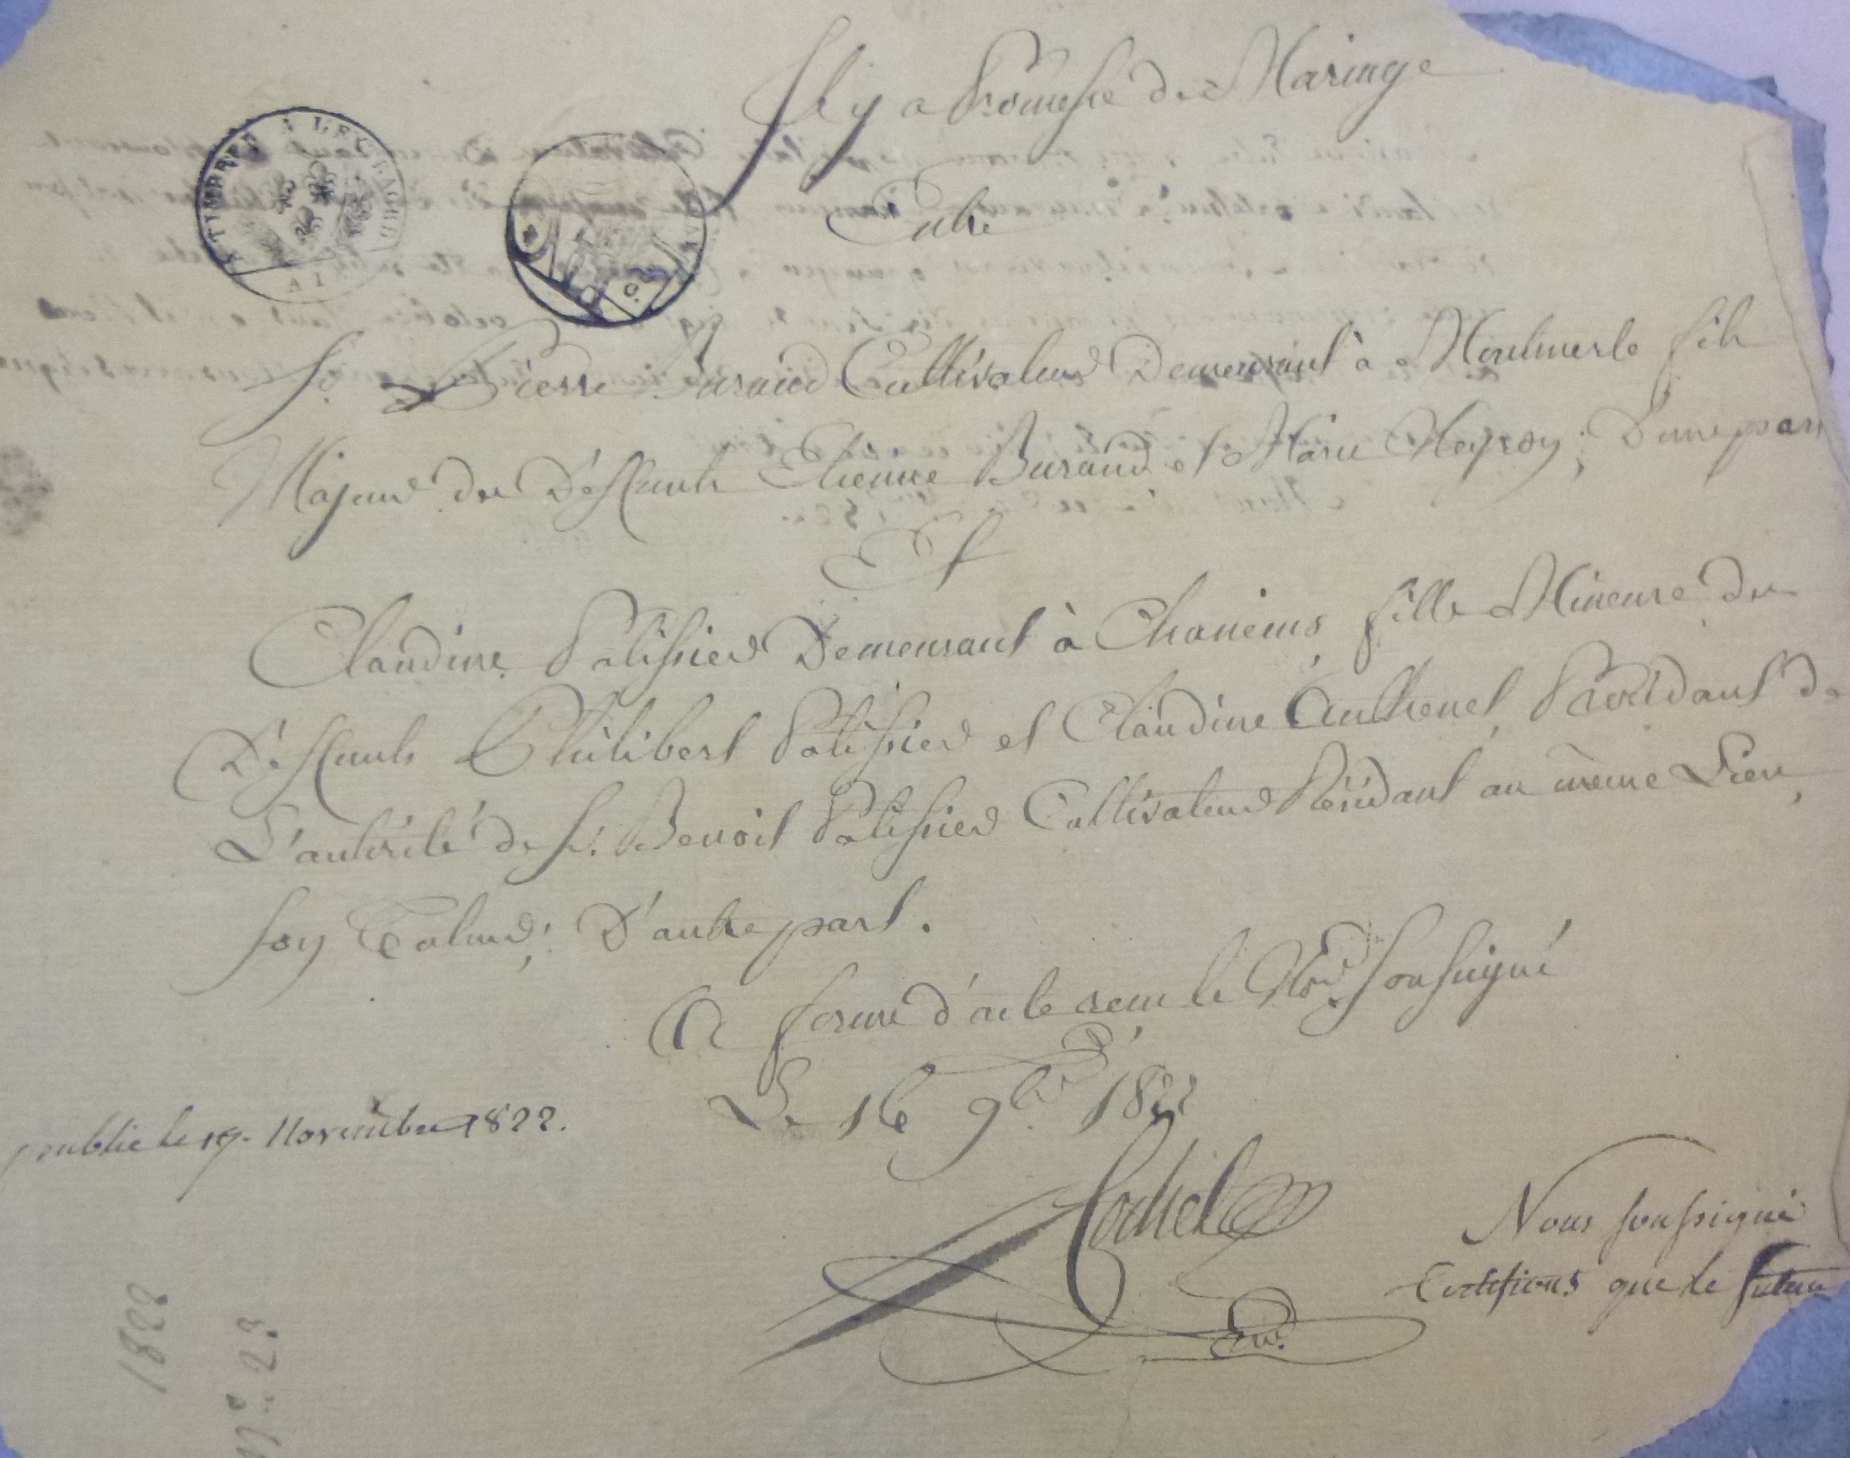 TIMBRE A L'EXTRAORD.
Il y a Promesse de Mariage
Entre
Sr. Pierre Buraud Cultivateur Demeurant à Montmerle fils
Majeur des Défunts Etienne Buraud et Marie Meyron; D'une part
Et
Claudine Palissier Demeurant à Chaneins fille Mineure des
Défunts Philibert Palissier et Claudine Authenet, Procédant de
L'autorité de Sr. Benoit Palissier Cultivateur Résidant au même Lieu,
son Tuteur; D'autre part.
A forme d'acte reçu le Nre. Soussigné
Le 16 9bre. 1822
publié le 17 Novembre 1822.
Nous soussigné
Certifions que le futur
1822
N°. 23